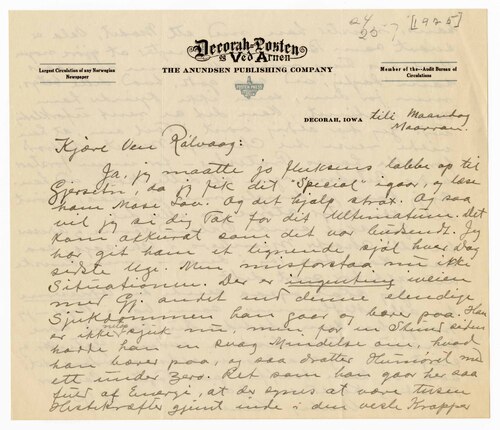 24
25? [1925]
Decorah-Posten
og Ved Arnen
Largest Circulation of any Norwegian
Newspaper
THE ANUNDSEN PUBLISHING COMPANY
Member of the Audit Bureau of
Circulations
DECORAH, IOWA
tili Maandag
Maarran.
Kjære Ven Rölvaag:
Ja, jeg maatte jo fluksens labbe op til
Gjerseth, da jeg fik dit "Special" igaar, og læse
ham Mose Lov. Og det hjalp strax. Og saa
vil jeg si dig Tak for dit Ultimatum. Det
kom akkurat som det var budsendt. Jeg
har git ham et lignende sjøl hver Dag
sidste Uge. Men misforstaa nu ikke
Situationen. Der er ingenting iveien
med Gj. andet end denne elendige
Sjukdommen han gaar og bærer paa. Han
er ikke sjuk nu, men for en Stund siden
hadde han en svag Mindelse om, hvad
han bærer paa, og saa dratter Humøret ned
ett under Zero. Ret som han gaar her saa
fuld af Energi, at der synes at være tusen
Hestekræfter gjemt inde i den vesle Kropper